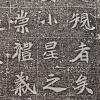 規者矣
小星之
崇禮義